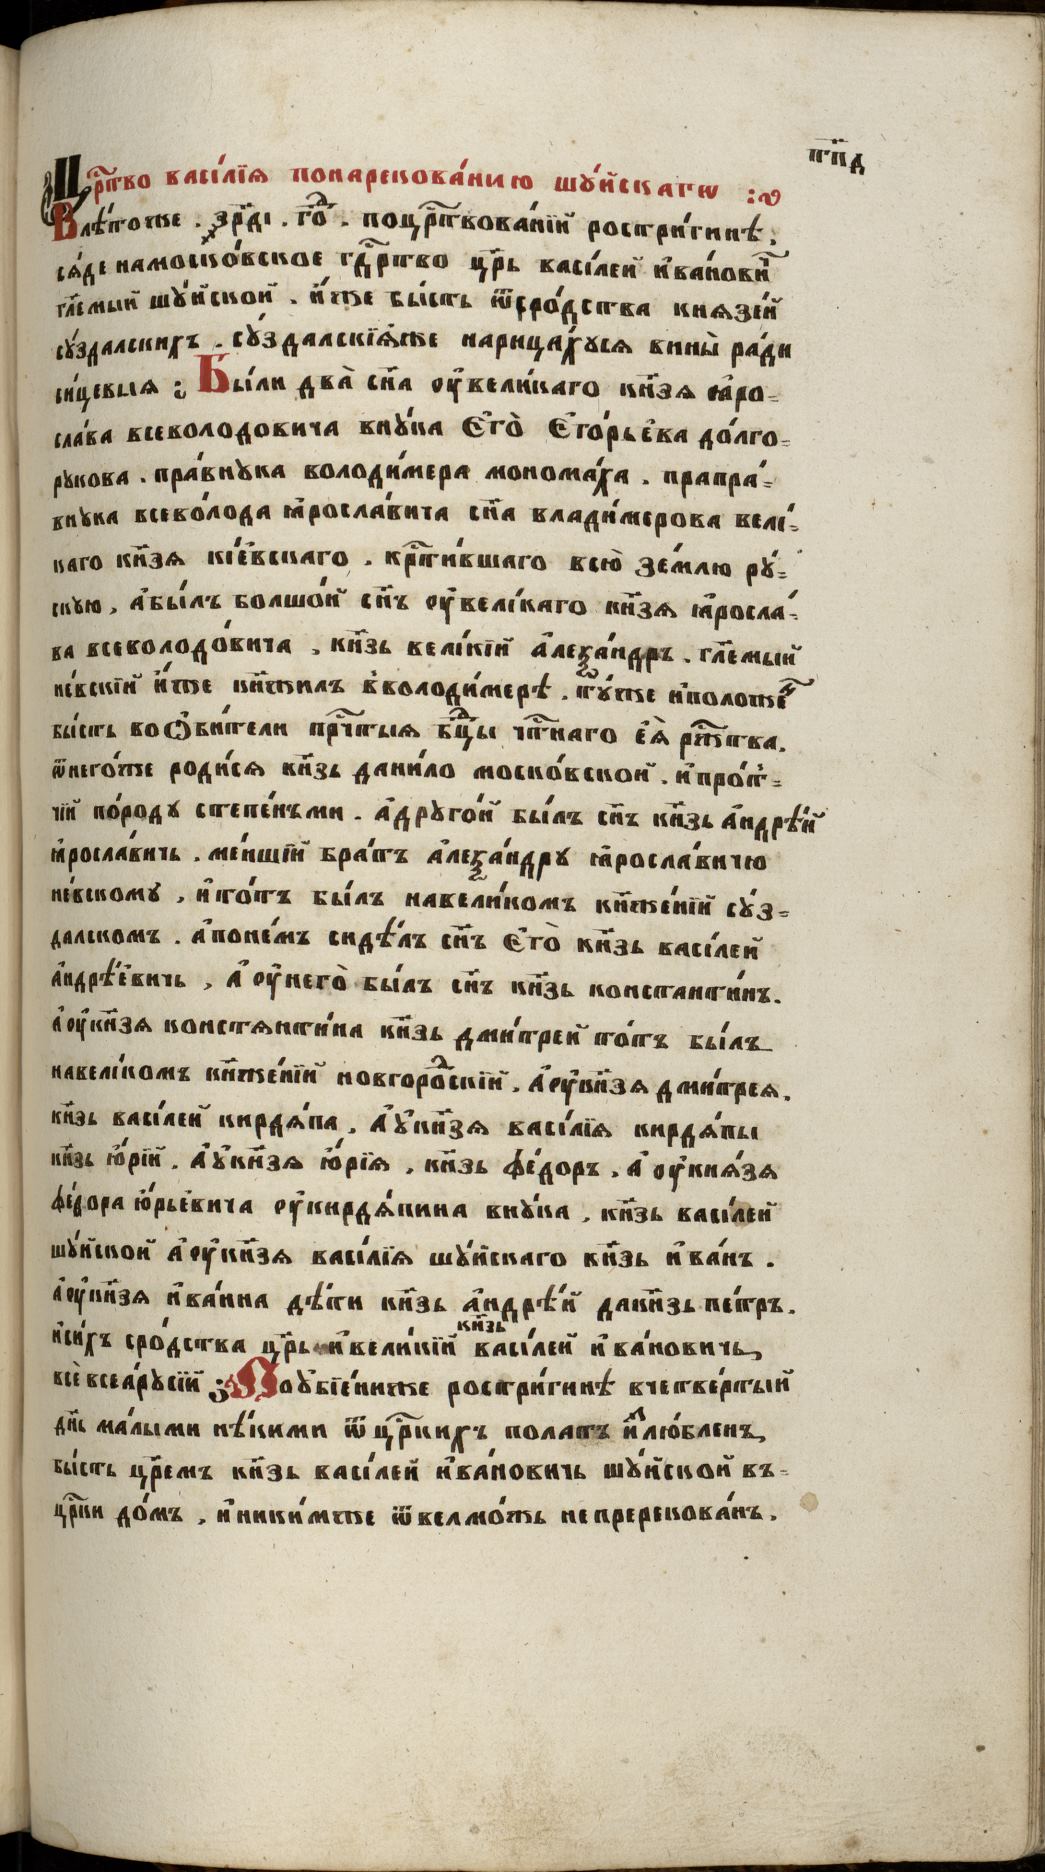 рп҃д
Црⷭ҇тво васі́лїѧ понарекова́нию шꙋ́йскагѡ :
Влѣ́тоже . ҂зр҃ді . гоⷣ . поцрⷭ҇твова́нїй ростри́гинѣ ,
сѧ́де намоско́вское гдⷭ҇рство цр҃ь васі́лей и҆ва́новиⷱ
гл҃емый шꙋ́йской . и҆́же бы́сть ѿсро́дства кнѧзе́й
сꙋ́здалскихъ . сꙋ́здалскїѧ́же нарица́хꙋсѧ вины̀ ра́ди
си́цевыѧ : Бы́ли два̀ сн҃а оу҆вели́каго кн҃зѧ ꙗ҆ро-
сла́ва всеволодовича внꙋ́ка є҆го̀ є҆го́рьева до́лго-
рꙋкова . пра́внꙋка володи́мера монома́ха . прапра́-
внꙋка всево́лода ꙗ҆росла́вича сн҃а влади́мерова велі́-
каго кн҃зѧ кіе́вскаго . крⷭ҇ти́вшаго всю̀ зе́млю рꙋ́-
скꙋю , а҆бы́лъ болшо́й сн҃ъ оу҆велі́каго кн҃зѧ ꙗ҆росла́-
ва всеволодо́вича , кн҃зь велі́кїй а҆леѯа́ндръ . гл҃емый
не́вскїй и҆́же кн҃жилъ в҆володи́мерѣ . тꙋ́же и҆положеⷩ
бы́сть воѻби́тели прⷱ҇тыѧ бцⷣы чтⷭ҇наго є҆ѧ̀ ржⷭ҇тва .
ѿнего́же роди́сѧ кн҃зь дани́ло моско́вской . и҆про́т-
чїй по́родꙋ степе́нъми . а҆дрꙋго́й бы́лъ сн҃ъ кн҃зь а҆ндрѣ́й
ꙗ҆росла́вичь . ме́ншїй бра́тъ а҆леѯа́ндрꙋ ꙗ҆росла́вичю
не́вскомꙋ , и҆то́тъ бы́лъ навели́комъ кн҃же́нїй сꙋ́з-
далскомъ . а҆поне́мъ сидѣ́лъ сн҃ъ є҆го̀ кн҃зь васі́лей
а҆ндрѣ́евичь , а҆ оу҆него̀ бы́лъ сн҃ъ кн҃зь константи́нъ .
а҆оу҆кн҃зѧ констѧнти́на кн҃зь дми́трей то́тъ бы́лъ
навелі́комъ кн҃же́нїй новгороⷣскїй . а҆оу҆кн҃зѧ дми́треѧ .
кн҃зь васі́лей кирдѧ́па , а҆ꙋ҆кн҃зѧ васі́лїѧ кирдѧ́пы
кн҃зь ю҆́рїй . а҆ꙋ҆кн҃зѧ ю҆́рїѧ , кн҃зь фе́доръ . а҆ оу҆кнѧ́зѧ
фе́дора ю҆́рьевича оу҆кирдѧ́пина внꙋ́ка , кн҃зь васі́лей
шꙋ́йской а҆оу҆кн҃зѧ васі́лїѧ шꙋ́йскаго кн҃зь и҆ва́нъ .
а҆оу҆кн҃зѧ и҆ва́нна дѣ́ти кн҃зь а҆ндрѣ́й дакн҃зь пе́тръ .
и҆си́хъ сро́дства цр҃ь и҆вели́кїй кн҃зь васі́лей и҆ва́новичь
всѐ всеа́рꙋсїй : Поу҆бїе́нииже ростри́гинѣ вчетве́ртый
дн҃ь ма́лыми нѣ́кими ѿ црⷭ҇кихъ полатъ и҆злю́бленъ
бы́сть цр҃емъ кн҃зь васі́лей и҆ва́новичь шꙋ́йской въ-
црⷭ҇ки до́мъ , и҆ники́мже ѿ велмо́жь непререкова́нъ .